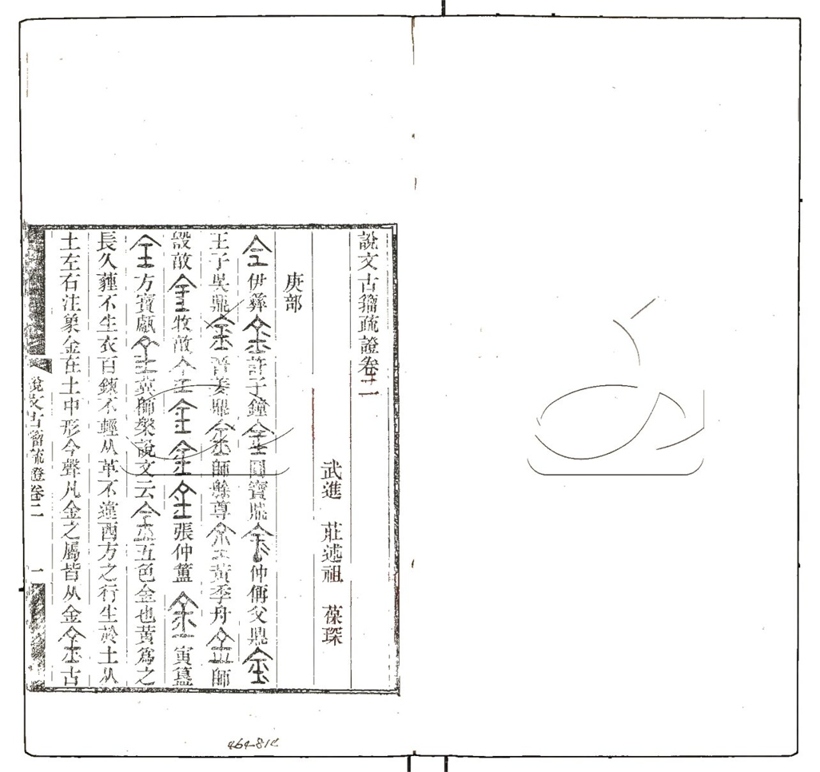 說文古籀疏證卷二
武進 莊述祖 葆琛
庚部
伊彝 許子鐘 圓寶鼎 仲偁父鼎
王子吳鼎 晉姜鼎 師艅尊 黃季舟 師
𣪘敔 牧敔 張仲簠 寅簋
方寶甗 說文云 五色金也黃爲之
長久薶不生衣百鍊不輕从革不違西方之行生於土从
土左右注象金在土中形今聲凡金之屬皆从金 古
說文古籀疏證卷二
一
464812